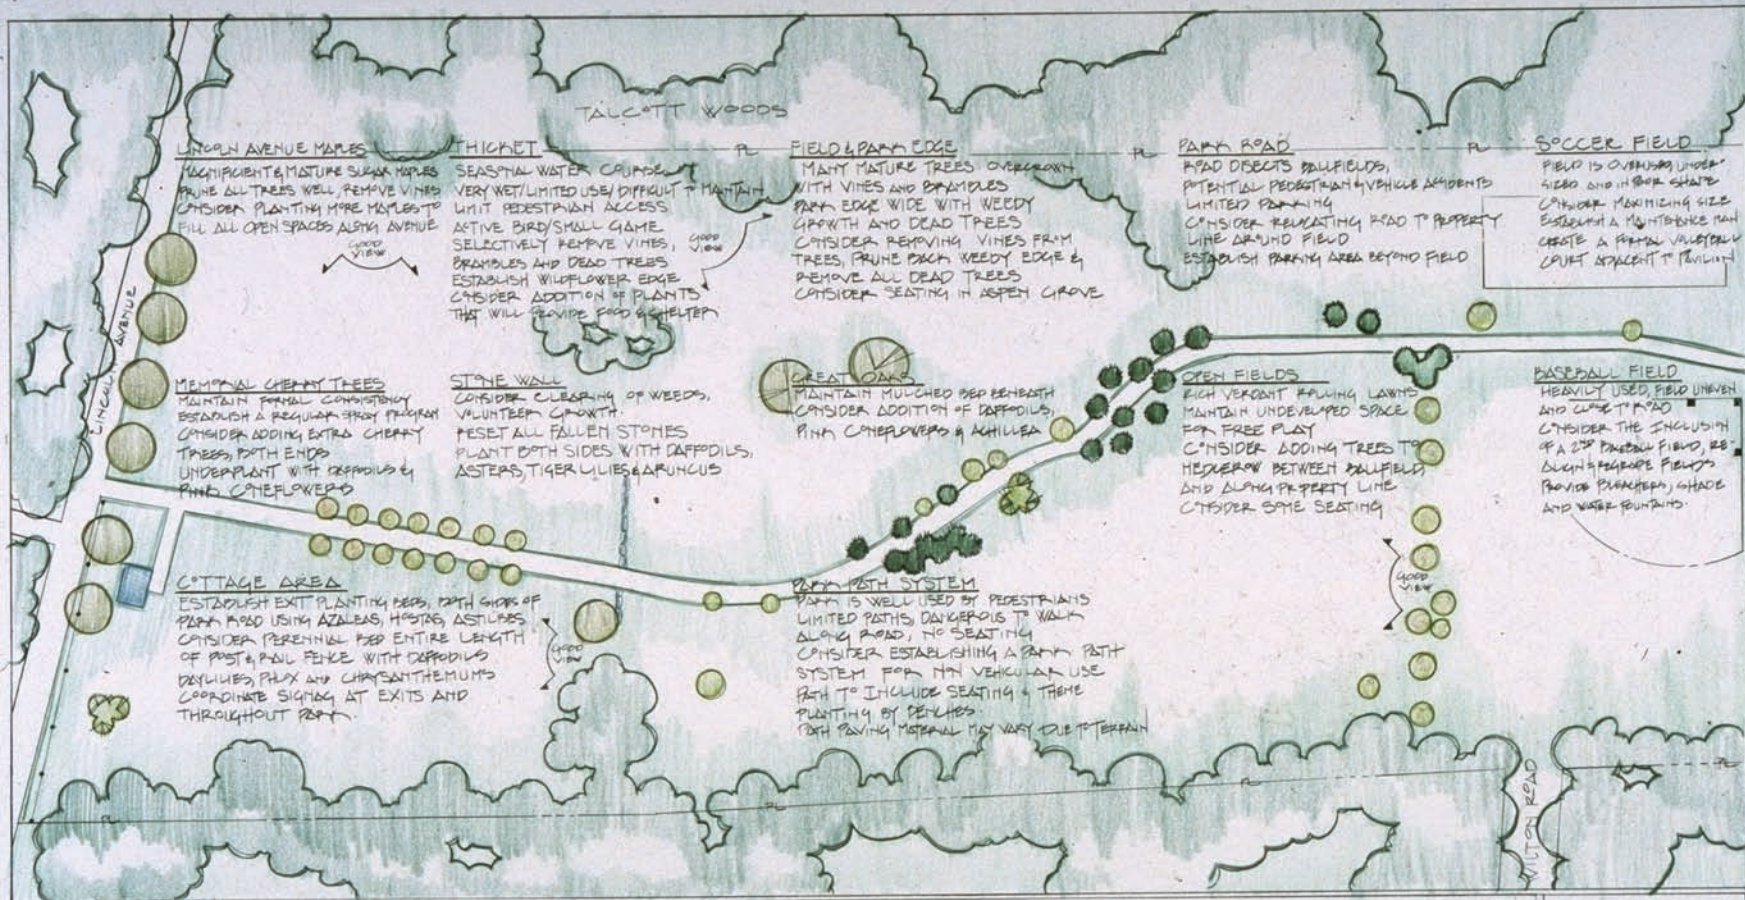 TALCOTT WOODS
LINCOLN AVENUE MAPLES
MAGNIFICIENT & MATURE SUGAR MAPLES
PRUNE ALL TREES WELL, REMOVE VINES
CONSIDER PLANTING MORE MAPLES TO
FILL ALL OPEN SPACES ALONG AVENUE
GOOD
VIEW
THICKET
SEASONAL WATER COURSE
VERY WET/LIMITED USE/DIFFICULT TO MAINTAIN
LIMIT PEDESTRIAN ACCESS
ACTIVE BIRD/SMALL GAME
SELECTIVELY REMOVE VINES,
BRAMBLES AND DEAD TREES
ESTABLISH WILDFLOWER EDGE
CONSIDER ADDITION OF PLANTS
THAT WILL PROVIDE FOOD & SHELTER
GOOD
VIEW
PL
FIELD & PARK EDGE
MANY MATURE TREES OVERGROWN
WITH VINES AND BRAMBLES
PARK EDGE WIDE WITH WEEDY
GROWTH AND DEAD TREES
CONSIDER REMOVING VINES FROM
TREES, PRUNE BACK WEEDY EDGE &
REMOVE ALL DEAD TREES
CONSIDER SEATING IN ASPEN GROVE
PL
PARK ROAD
ROAD DISECTS BALLFIELDS,
POTENTIAL PEDESTRIAN & VEHICLE ACCIDENTS
LIMITED PARKING
CONSIDER RELOCATING ROAD TO PROPERTY
LINE AROUND FIELD
ESTABLISH PARKING AREA BEYOND FIELD
PL
SOCCER FIELD
FIELD IS OVERUSED, UNDER
SIZED AND IN POOR SHAPE
CONSIDER MAXIMIZING SIZE
ESTABLISH A MAINTENANCE PLAN
CREATE A FORMAL VOLLEYBALL
COURT ADJACENT TO PAVILION
LINCOLN AVENUE
MEMORIAL CHERRY TREES
MAINTAIN FORMAL CONSISTENCY
ESTABLISH A REGULAR SPRAY PROGRAM
CONSIDER ADDING EXTRA CHERRY
TREES, BOTH ENDS
UNDERPLANT WITH DAFFODILS &
PINK CONEFLOWERS
STONE WALL
CONSIDER CLEARING OF WEEDS,
VOLUNTEER GROWTH.
RESET ALL FALLEN STONES
PLANT BOTH SIDES WITH DAFFODILS,
ASTERS, TIGER LILIES & ARUNCUS
GREAT OAKS
MAINTAIN MULCHED BED BENEATH
CONSIDER ADDITION OF DAFFODILS,
PINK CONEFLOWERS & ACHILLEA
OPEN FIELDS
RICH VERDANT ROLLING LAWNS
MAINTAIN UNDEVELOPED SPACE
FOR FREE PLAY
CONSIDER ADDING TREES TO
HEDGEROW BETWEEN BALLFIELD,
AND ALONG PROPERTY LINE
CONSIDER SOME SEATING
BASEBALL FIELD
HEAVILY USED, FIELD UNEVEN
AND CLOSE TO ROAD
CONSIDER THE INCLUSION
OF A 2ND BASEBALL FIELD, RE-
ALIGN & REGRADE FIELDS
PROVIDE BLEACHERS, SHADE
AND WATER FOUNTAINS.
COTTAGE AREA
ESTABLISH EXIT PLANTING BEDS, BOTH SIDES OF
PARK ROAD USING AZALEAS, HOSTAS, ASTILBES
CONSIDER PERENNIAL BED ENTIRE LENGTH
OF POST & RAIL FENCE WITH DAFFODILS
DAYLILIES, PHLOX AND CHRYSANTHEMUMS
COORDINATE SIGNAG AT EXITS AND
THROUGHOUT PARK.
GOOD
VIEW
PARK PATH SYSTEM
PARK IS WELL USED BY PEDESTRIANS
LIMITED PATHS, DANGEROUS TO WALK
ALONG ROAD, NO SEATING
CONSIDER ESTABLISHING A PARK PATH
SYSTEM FOR NON VEHICULAR USE
PATH TO INCLUDE SEATING & THEME
PLANTING BY BENCHES.
PATH PAVING MATERIAL MAY VARY DUE TO TERRAIN
GOOD
VIEW
PL
PL
PL
PL
WILTON ROAD